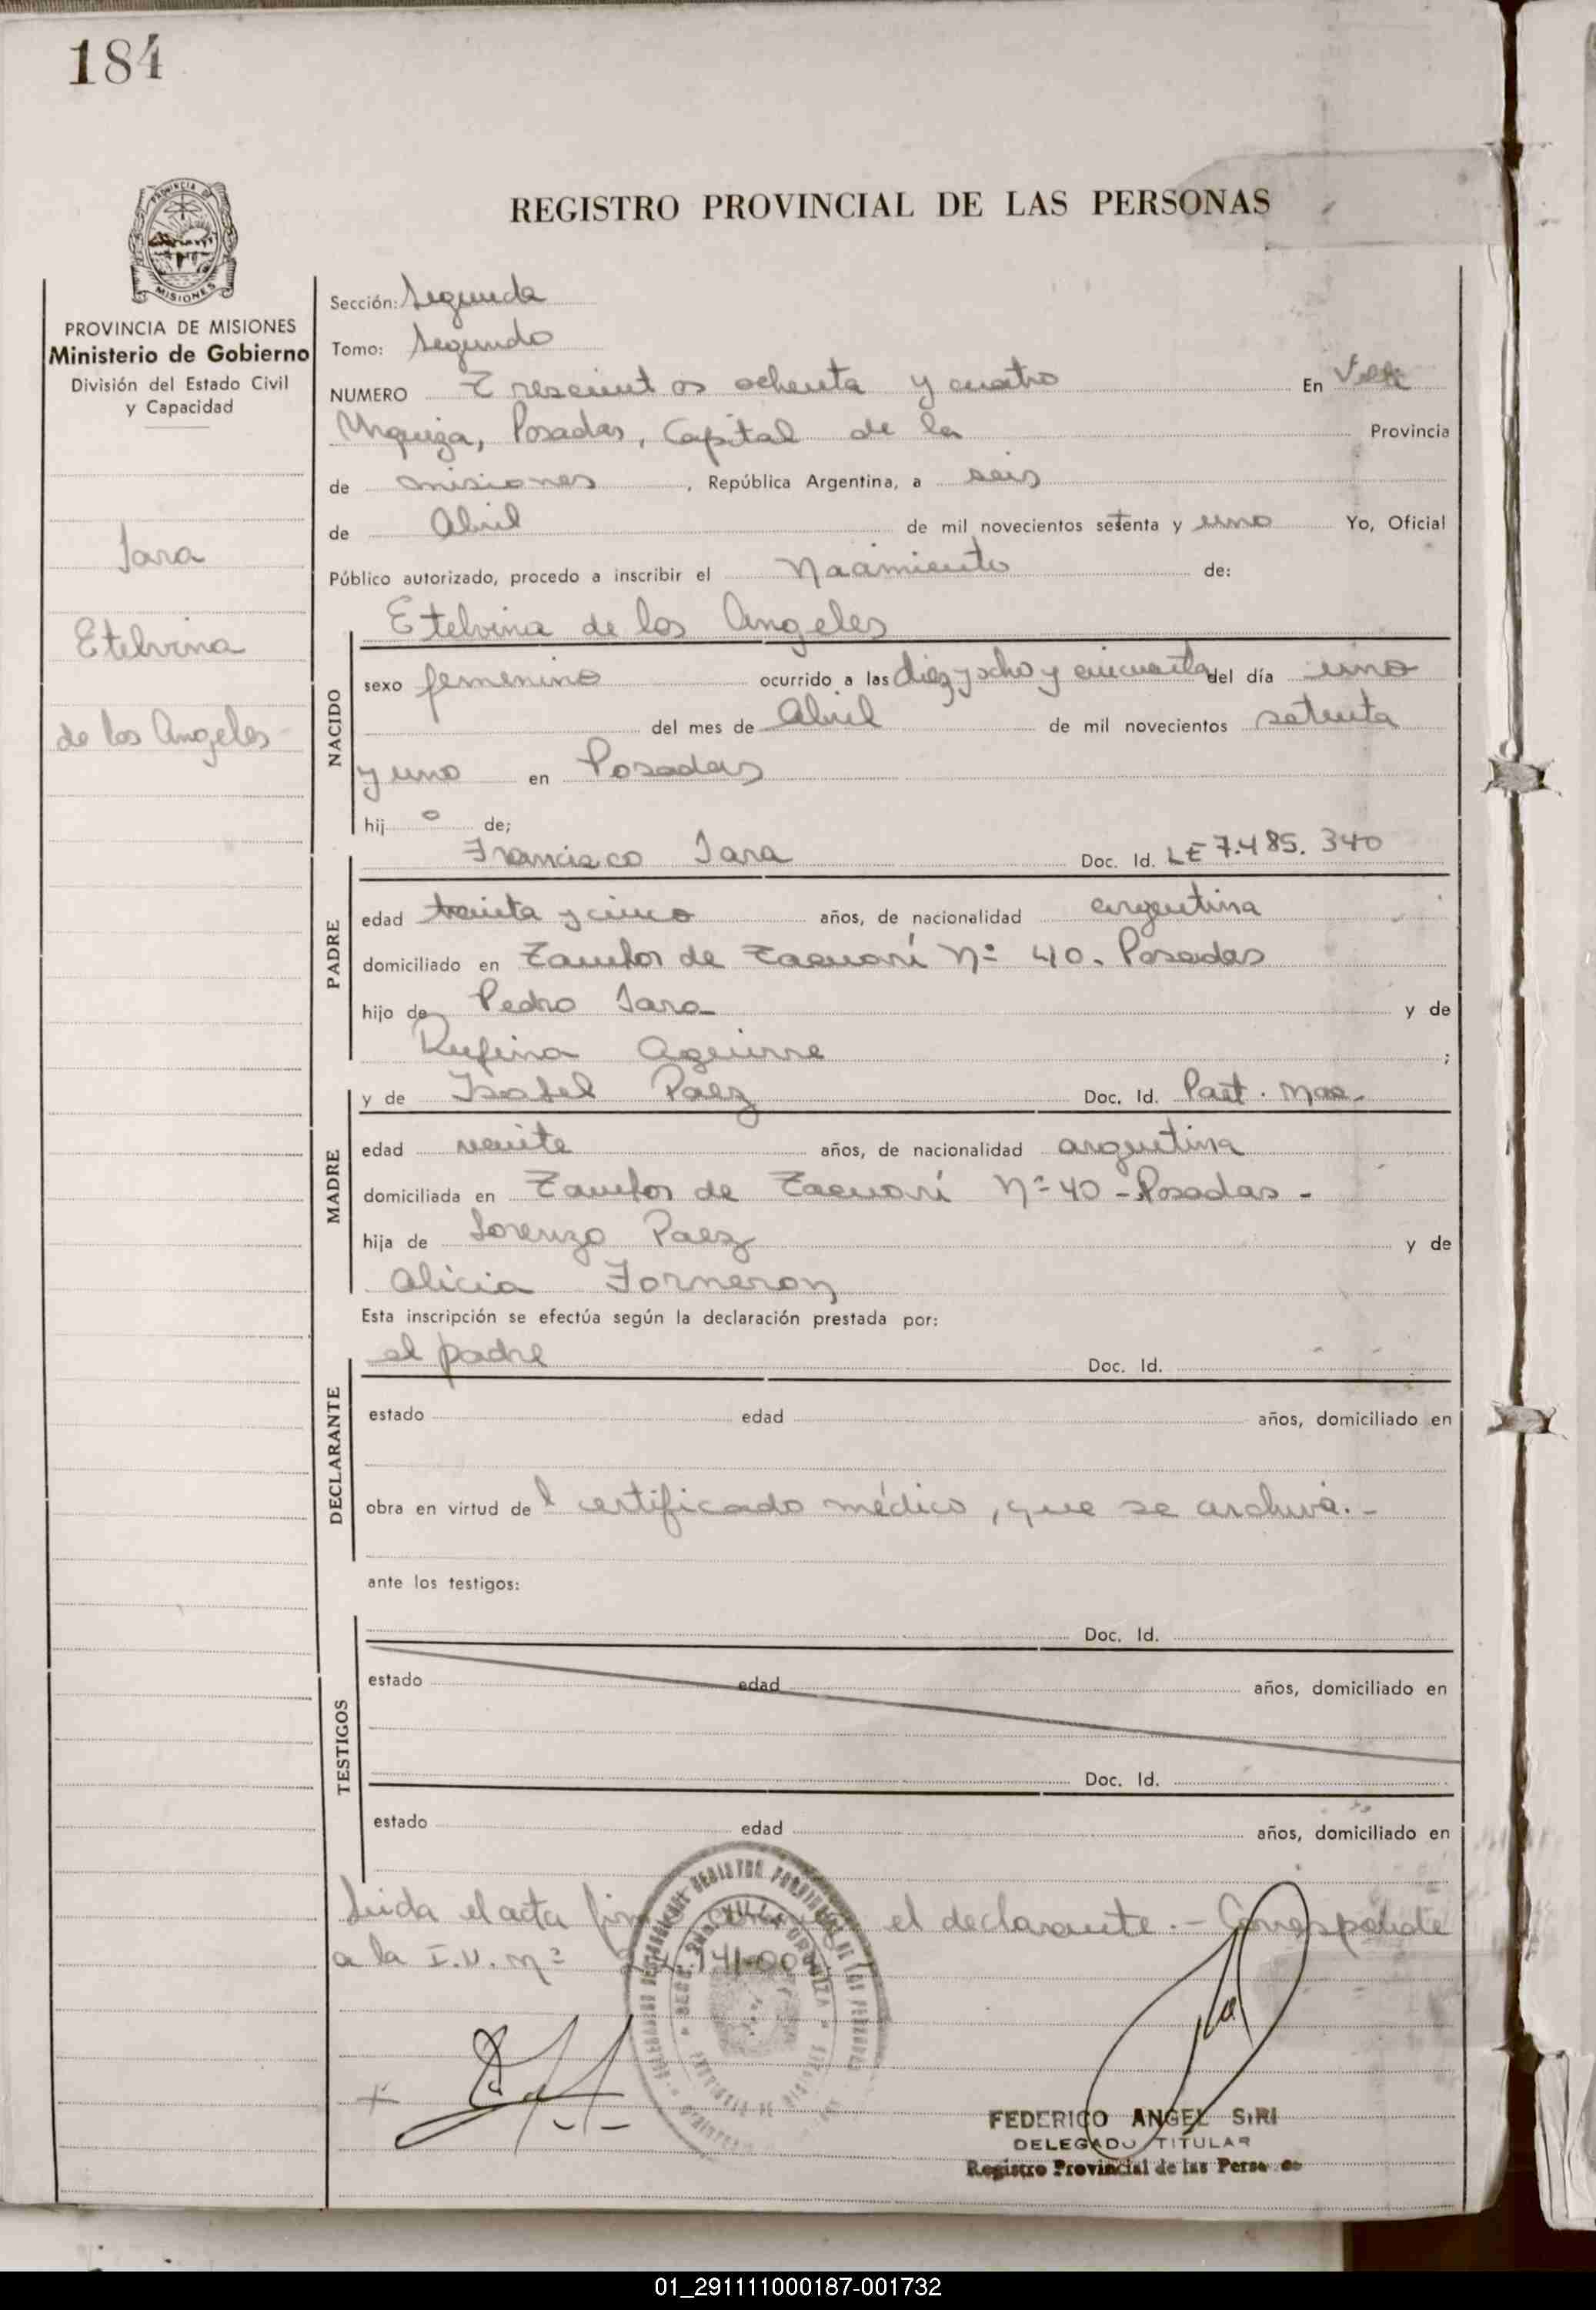 184
REGISTRO PROVINCIAL DE LAS PERSONAS
PROVINCIA DE MISIONES
Ministerio de Gobierno
División del Estado Civil
y Capacidad
Jara
Etelvina
de los Angeles
Sección: Segunda
Tomo: Segundo
NUMERO Trescient os ochenta y cuatro En Villa
Urquiza, Posadas, Capital de la Provincia
de misiones, República Argentina, a seis
de Abril de mil novecientos setenta y uno Yo, Oficial
Público autorizado, procedo a inscribir el Nacimiento de:
Etelvina de los Angeles
NACIDO
sexo femenino ocurrido a las diez y ocho y cincuenta del día uno
del mes de Abril de mil novecientos setenta
y uno en Posadas
hij o de;
Francisco Jara Doc. Id. LE 7.485.340
PADRE
edad treinta y cinco años, de nacionalidad argentina
domiciliado en de Tacuarí Nº 40. Posadas
hijo de Pedro Jara y de
Rufina Aguirre ;
y de Isabel Paez Doc. Id. Part. Nac.
MADRE
edad veinte años, de nacionalidad argentina
domiciliada en de Tacuarí Nº 40 - Posadas -
hija de Lorenzo Paez y de
Alicia Forneron
Esta inscripción se efectúa según la declaración prestada por:
el padre Doc. Id.
DECLARANTE
estado edad años, domiciliado en
obra en virtud del certificado médico, que se archiva.-
ante los testigos:
Doc. Id.
TESTIGOS
estado edad años, domiciliado en
Doc. Id.
estado edad años, domiciliado en
Leida el acta el declarante.- Corresponde
a la I.N. nº
FEDERICO ANGEL SIRI
DELEGADO TITULAR
Registro Provincial de las Perso
01_291111000187-001732